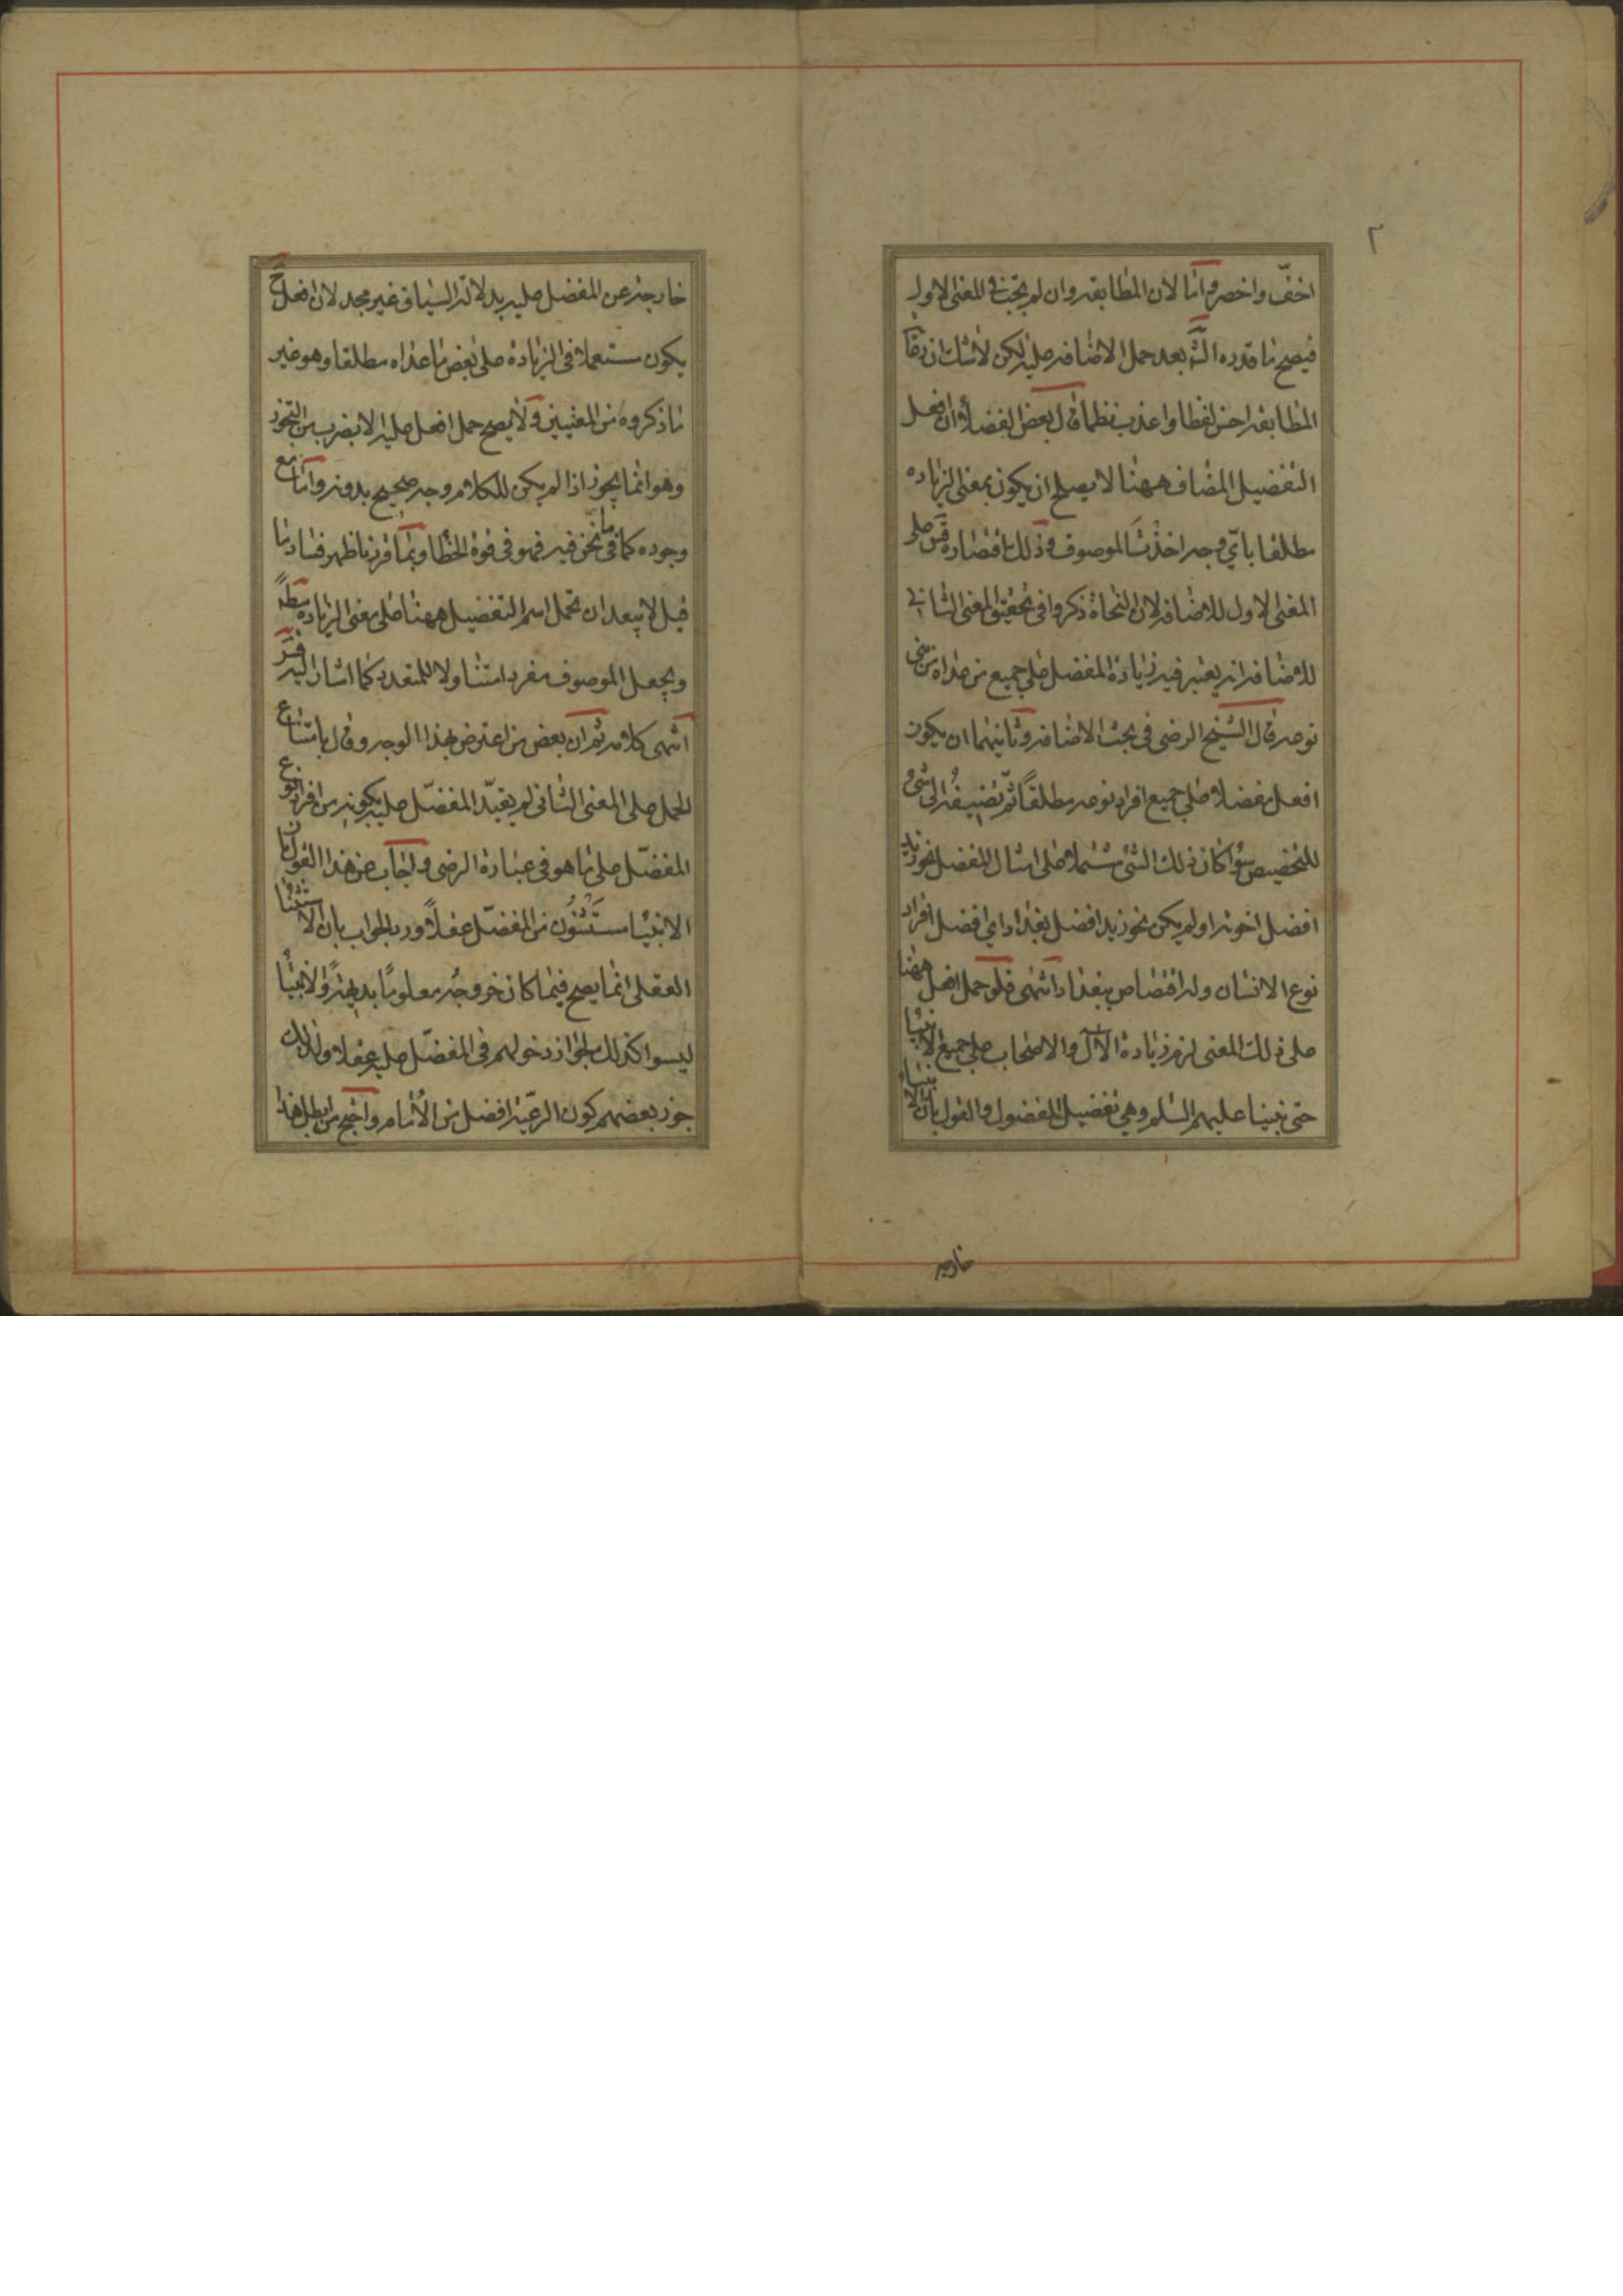 ٢
اخفّ واخصر واما لان المطابقة وان لم يجب في المعنى الاول
فيصح ما قدره الشّ بعد حمل الاضافة عليه لكن لا شك ان رعا
المطابقة احسن لفظا واعذب نظما قال بعض الفضلاء ان افعل
التفضيل المضاف ههنا لا يصلح ان يكون بمعنى الزيادة
مطلقا بايّ وجه اخذت الموصوف وذلك على
المعنى الاول للاضافة لان النحاة ذكروا في تحقيق المعنى الثاني
للاضافة انه يعتبر فيه زيادة المفضل على جميع من عداه من بنى
نوعه قال الشيخ الرضي في بحث الاضافة وثانيهما ان يكون
افعل مفضلا على جميع افراد نوعه مطلقًا ثمّ تضيفُه الى شئ
للتخصيص سواء كان ذلك الشئ مشتملا على امثال المفضل نحو زيد
افضل اخوته او لم يكن نحو زيد افضل بغداد اي افضل افراد
نوع الانسان وله اختصاص ببغداد انتهى فلو حمل افعل ههنا
على ذلك المعنى لزم زيادة الآل والاصحاب على جميع الانبيا
حتى نبينا عليهم السلم وهي تفضيل المفضول والقول بان الانبياء
خارجة
خارجة عن المفضل عليه بدلالة السياق غير مجد لان افعل ح
يكون مستعملا في الزيادة على بعض ما عداه مطلقا وهو غير
ما ذكروه من المعنيين ولا يصح حمل افعل عليه الا بضرب من التجوز
وهو انما يجوز اذا لم يكن للكلام وجه صحيح بدونه واما مع
وجوده كما في ما نحن فيه فهو في قوة الخطا وبما قررنا ظهر فساد ما
قيل لا يبعد ان يحمل اسم التفضيل ههنا على معنى الزيادة مطلقاً
ويجعل الموصوف مفردا متناولا للمتعدد كما اشار اليه
انتهى كلامه ثم ان بعض من اعترض بهذا الوجه وقال بامتناع
الحمل على المعنى الثاني لم يقيّد المفضّل عليه بكونه من افراد نوع
المفضّل على ما هو في عبارة الرضي واجاب عن هذا القول بان
الانبيا مستثنَون من المفضّل عقلاً ورد الجواب بان الاستثنا
العقلي انما يصح فيما كان خروجُه معلومًا بديهةً والانبيأ
ليسوا كذلك لجواز دخولهم في المفضّل عليه عقلا ولذلك
جوز بعضهم كون الرعيّة افضل من الأمام واحتج من ابطل هذا